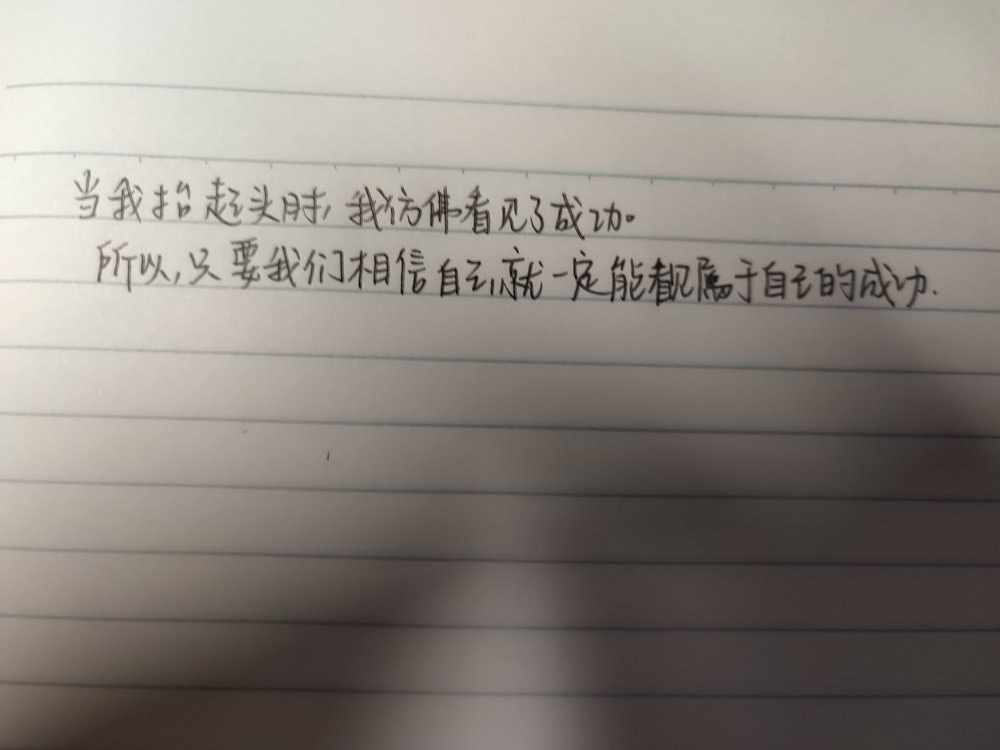 当我抬起头时,我仿佛看见了成功。
所以,只要我们相信自己,就一定能看见属于自己的成功.